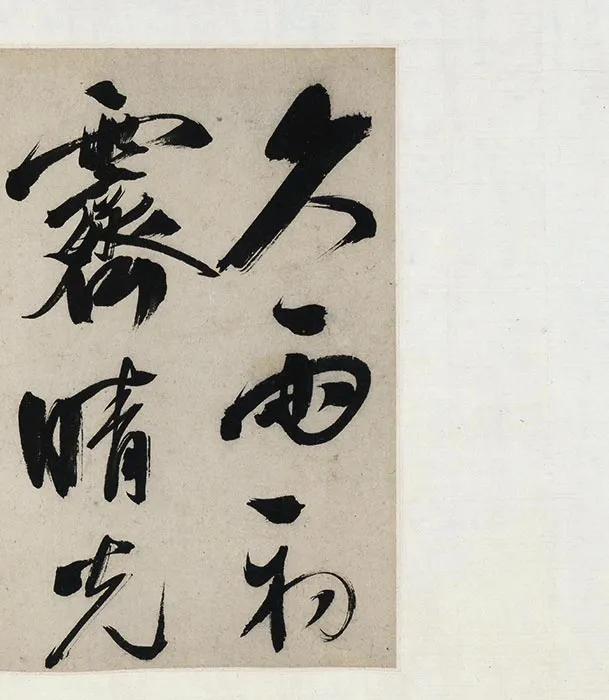 久雨初
霽晴光